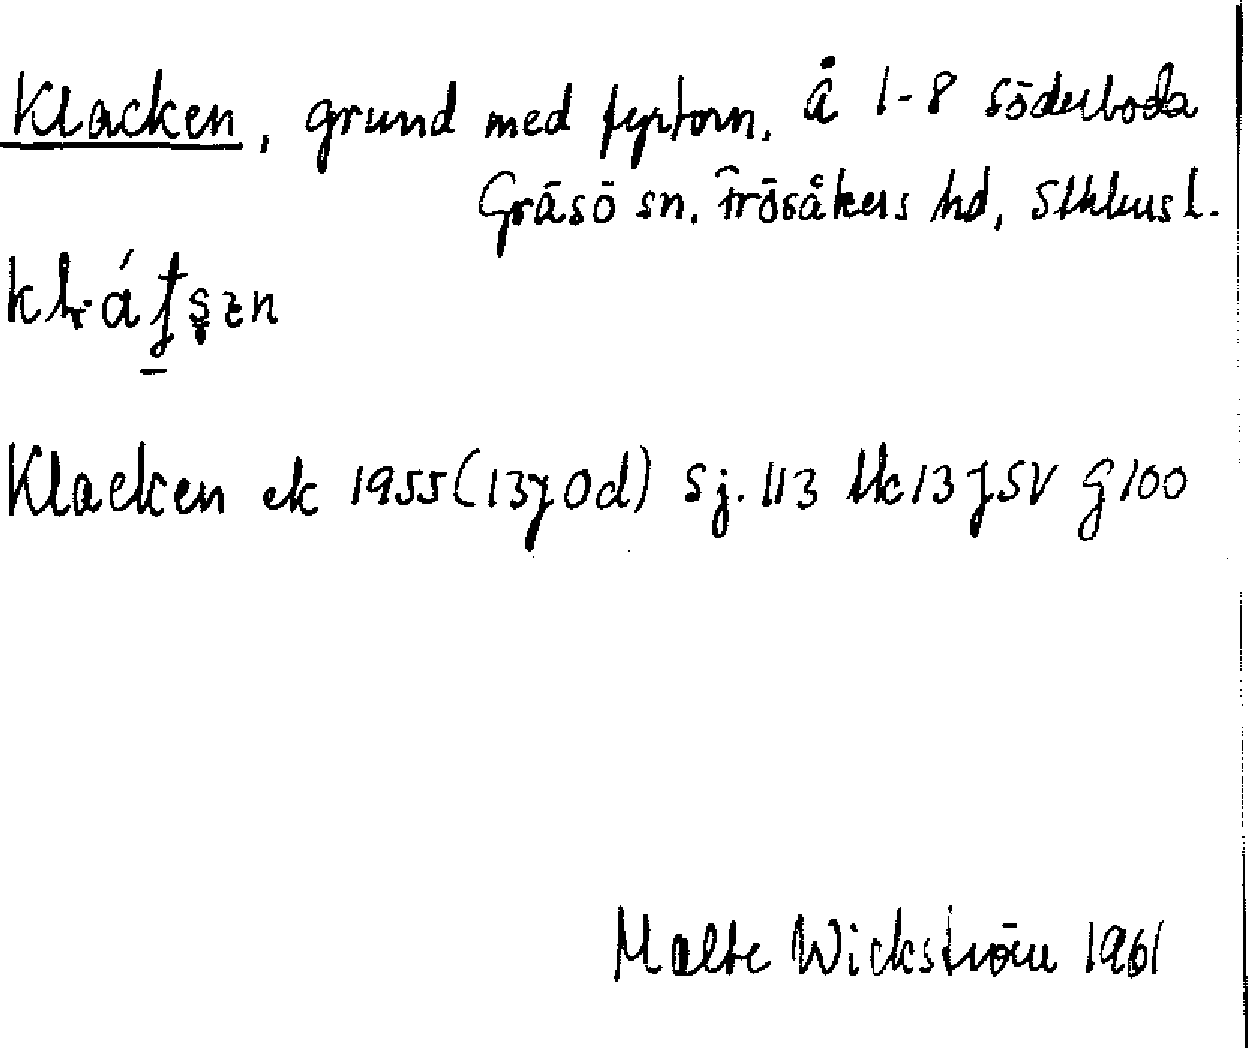 Klacken, grund med fyrtorn. Å 1-8 Söderboda
Gräsö sn. Frösåkers hd, Sthlms l.
Klacken ek 1955 (13J 0d) Sj. 113 tk 13 J SV G 100
Malte Wickström 1961